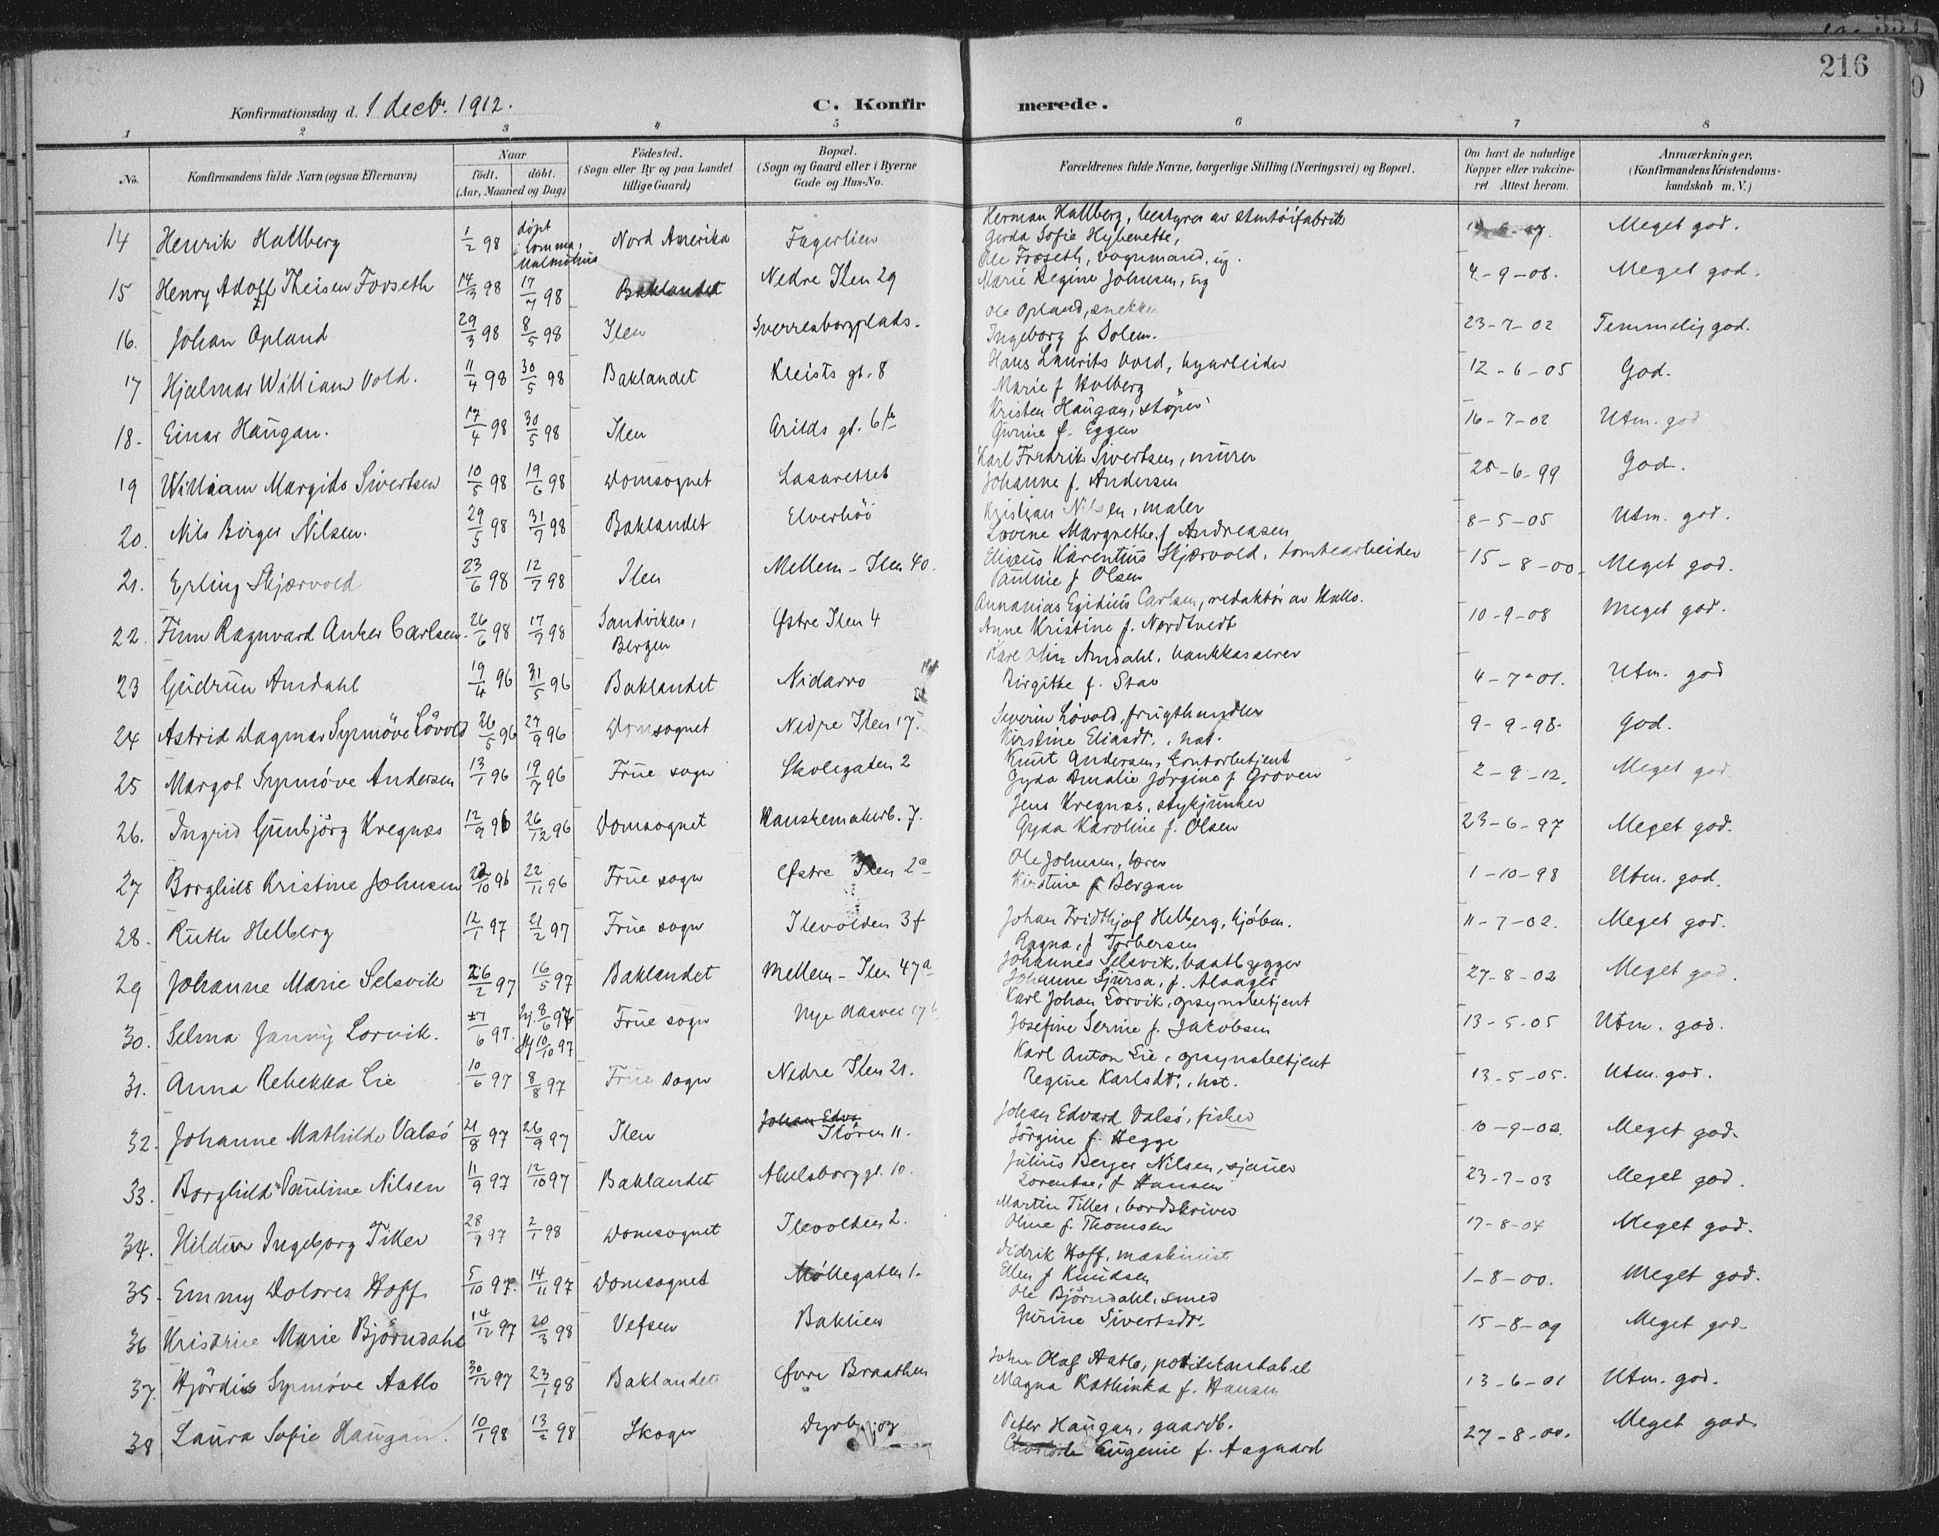 216
Konfirmationsdag d. 1 decbr. 1912.
C. Konfirmerede.
1 2 3 4 5 6 7 8
No. Konfirmandens fulde Navn (ogsaa Efternavn) Naar født. døbt. (Aar, Maaned og Dag) Fødested. (Sogn eller By og paa Landet tillige Gaard) Bopæl. (Sogn og Gaard eller i Byerne Gade og Hus-No. Forældrenes fulde Navne, borgerlige Stilling (Næringsvei) og Bopæl. Om havt de naturlige Kopper eller vakcineret Attest herom. Anmærkninger. (Konfirmandens Kristendomskundskab m. V.)
14 Henrik Hallberg 1/2 98 døpt i Lomma, Malmøhus Nord Amerika Fagerlien Herman Hallberg, bestyrer av Gerda Sofie Hybenette, Meget god.
15 Henry Adolf Theisen Forseth 14/3 98 17/7 98 Baklandet Nedre Ilen 29 Ole Forseth, vognmand, ug. Marie Regine Johnsen, ug 4-9-08. Meget god.
16. Johan Opland 29/3 98 8/5 98 Ilen Sverresborgplads. Ole Opland, snekker Ingeborg f. Solem. 23-7-02 Temmelig god.
17 Hjalmar William Vold. 11/4 98 30/5 98 Baklandet Kleists gt. 8 Hans Laurits Vold, byarbeider Marie f Holberg 12-6-05 God.
18. Einar Haugan. 17/4 98 30/5 98 Ilen Arilds gt. 6 Kristen Haugan, støper Gurine f. Eggen 16-7-02 Utm. god
19 William Margido Sivertsen 10/5 98 19/6 98 Domsognet Lasarettet Karl Fredrik Sivertsen, murer Johanne f. Andersen 28-6-99 God.
20. Nils Birger Nilsen. 29/5 98 31/7 98 Baklandet Elverhöi Kristian Nilsen, maler Lovene Margrethe f Andreasen 8-5-05 Utm. god.
21. Erling Skjærvold 23/6 98 12/7 98 Ilen Mellem-Ilen 40. Eliseus Karentius Skjærvold, tomtearbeider Pauline f. Olsen 15-8-00. Meget god.
22. Finn Ragnvard Anker Carlsen. 26/6 98 17/7 98 Sandviken, Bergen Østre Ilen 4 Annanias Egidius Carlsen, redaktör av Anne Kristine f. Nordtvedt 10-9-08 Meget god.
23 Gudrun Amdahl 19/4 96 31/5 96 Baklandet Nidarvo Karl Olin Amdahl, bankkasserer Birgitte f. Stav 4-7-01. Utm. god
24 Astrid Dagmar Synnöve Lövold 26/5 96 27/9 96 Domsognet Nedre Ilen 17. Severin Lövold, frugthandler Kirstine Eliasdt., hst. 9-9-98. God.
25 Margot Synnöve Andersen 13/1 96 19/7 96 Frue sogn Skolegaten 2 Knut Andersen, kontorbetjent Gyda Amalie Jørgine f Groven 2-9-12. Meget god
26. Ingrid Gunbjörg Kregnæs 12/9 96 26/12 96 Domsognet Hanskemakerb. 7. Jens Kregnæs, stykjunker Gyda Karoline f. Olsen 23-6-97 Meget god.
27 Borghild Kristine Johnsen 22/10 96 22/11 96 Frue sogn Østre Ilen 2a Ole Johnsen, lærer Kirstine f Bergan 1-10-98 Utm. god.
28. Ruth Helberg 12/1 97 21/2 97 Frue sogn Ilevolden 3f Johan Fridthjof Helberg, kjöbm. Ragna, f Torbersen 11-7-02. Meget god.
29 Johanne Marie Selsvik 26/2 97 16/5 97 Baklandet Mellem-Ilen 47a Johannes Selsvik, baatbygger Johanne Sjursa, f. Alsager 27-8-02 Meget god.
30. Selma Janny Lorvik. /6 97. hj. 8/6 97 st 10/10 97 Frue sogn Nye Aasvei 17b Karl Johan Lorvik, opsynsbetjent Josefine Serine f. Jakobsen 13-5-05 Utm. god.
31. Anna Rebekka Lie 10/6 97 8/8 97 Frue sogn Nedre Ilen 21. Karl Anton Lie, opsynsbetjent Regine Karlsdt., hst. 13-5-05. Utm. god.
32. Johanne Mathilde Valsö 21/8 97 26/9 97 Ilen Johan Edva Ilören 11. Johan Edvard Valsö, fisker Jörgine f. Hegge 10-9-02. Meget god.
33. Borghild Pauline Nilsen 11/9 97 12/10 97 Baklandet Abelsborg gt. 10. Julius Berger Nilsen, sjauer Lorentse, f Hansen 23-7-03 Meget god.
34. Hildur Ingeborg Tiller 28/9 97 2/1 98 Domsognet Ilevolden 2. Martin Tiller, bordskriver Oline f. Thomsen 17-8-04 Meget god.
35. Emmy Dolores Hoff 5/10 97. 14/11 97 Domsognet Möllegaten 1. Didrik Hoff, maskinist Ellen f Knudsen 1-8-00. Meget god.
36 Kristine Marie Björndahl 14/12 97 20/3 98 Vefsen Baklien Ole Björndahl, smed Gurine Sivertsdt. 15-8-09 Meget god.
37. Hjördis Synnöve Aatlo 30/12 97 23/1 98 Baklandet Øvre Braathen Johan Olaf Aatlo, politikonstabel Magna Kathinka f. Hansen 13-6-01 Utm. god.
38 Laura Sofie Haugan. 10/1 98 13/2 98 Skogn Dyrborg Peter Haugan, gaardb. Eugenie f. Aagaard 27-8-00. Meget god.